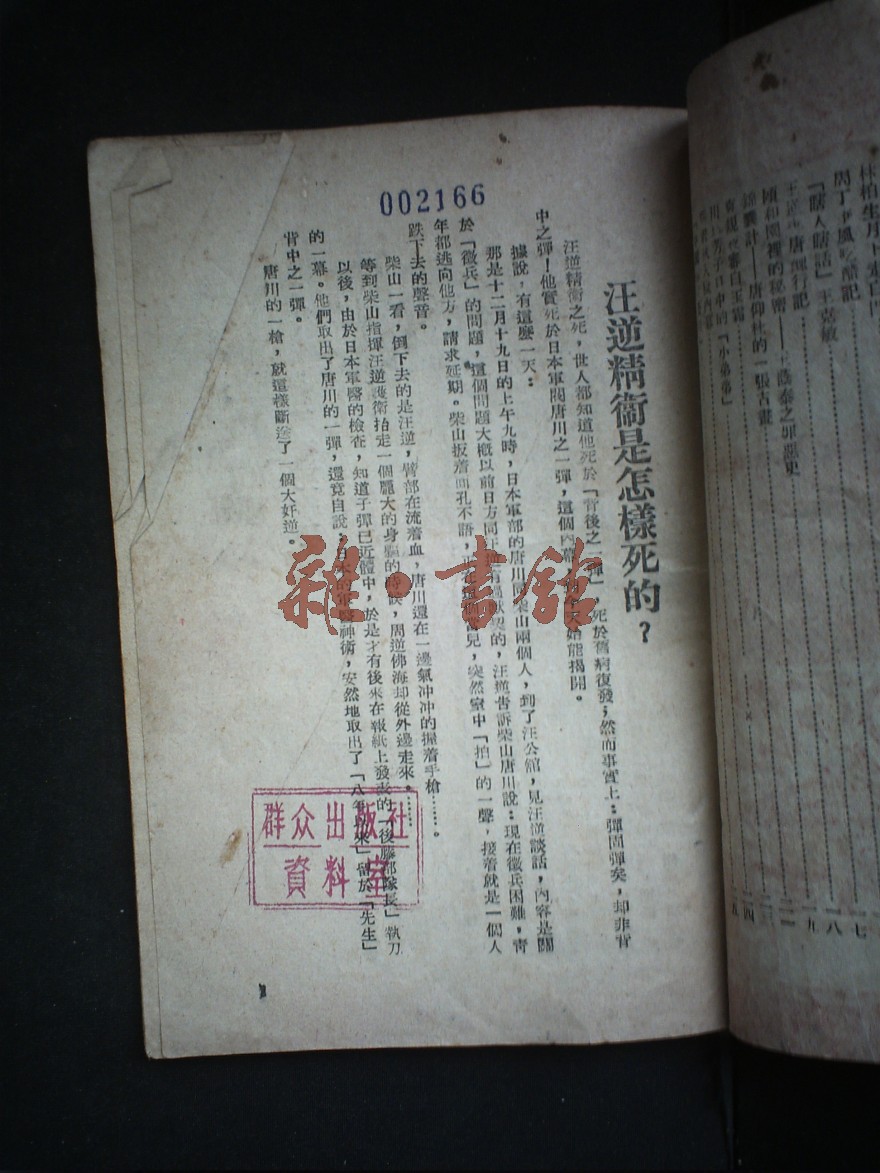 汪逆精衞是怎樣死的？
汪逆精衞之死，世人都知道他死於「背後之一彈」，死於舊病復發；然而事實上：彈固彈矣，却非背
中之彈！他實死於日本軍閥唐川之一彈，這個內幕，到今天始能揭開。
據說，有這麼一天：
那是十二月十九日的上午九時，日本軍部的唐川同柴山兩個人，到了汪公館，見汪逆談話，內容是關
於「徵兵」的問題，這個問題大概以前日方同汪逆有過默契的，汪逆告訴柴山唐川說：現在徵兵困難，靑
年都逃向他方，請求延期。柴山扳着面孔不語，正在這個當兒，突然室中「拍」的一聲，接着就是一個人
跌下去的聲音。
柴山一看，倒下去的是汪逆，臂部在流着血，唐川還在一邊氣冲冲的握着手槍……。
等到柴山指揮汪逆護衞抬走一個龐大的身軀的時候，周逆佛海却從外邊走來。……
以後，由於日本軍醫的檢查，知道子彈已近體中，於是才有後來在報紙上發表的「後藤部隊長」執刀
的一幕。他們取出了唐川的一彈，還竟自說：日本的軍醫神術，安然地取出了「八年以來」留於「先生」
背中之一彈。
唐川的一槍，就這樣斷送了一個大奸逆。
002166
群众出版社
資料室
雜·書館
周丁
風吃醋記
「瞎人瞎話」王嘉敏
頤和園裡的秘密
唐仰杜的一張古畫
之罪惡史
「小弟弟」
七
八
九
四
五